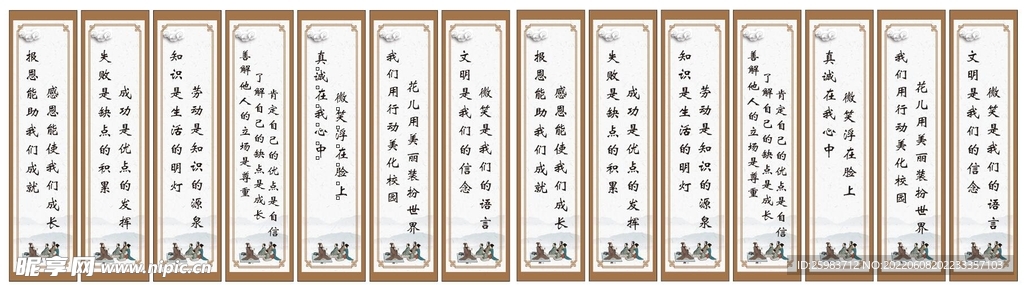 感恩能使我们成长
报恩能助我们成就
成功是优点的发挥
失败是缺点的积累
劳动是知识的源泉
知识是生活的明灯
肯定自己的优点是自信
了解自己的缺点是成长
善解他人的立场是尊重
微笑浮在脸上
真诚在我心中
花儿用美丽装扮世界
我们用行动美化校园
微笑是我们的语言
文明是我们的信念
感恩能使我们成长
报恩能助我们成就
成功是优点的发挥
失败是缺点的积累
劳动是知识的源泉
知识是生活的明灯
肯定自己的优点是自信
了解自己的缺点是成长
善解他人的立场是尊重
微笑浮在脸上
真诚在我心中
花儿用美丽装扮世界
我们用行动美化校园
微笑是我们的语言
文明是我们的信念
昵享网 www.nipic.cn
ID:25983712 NO:20220608202233357103